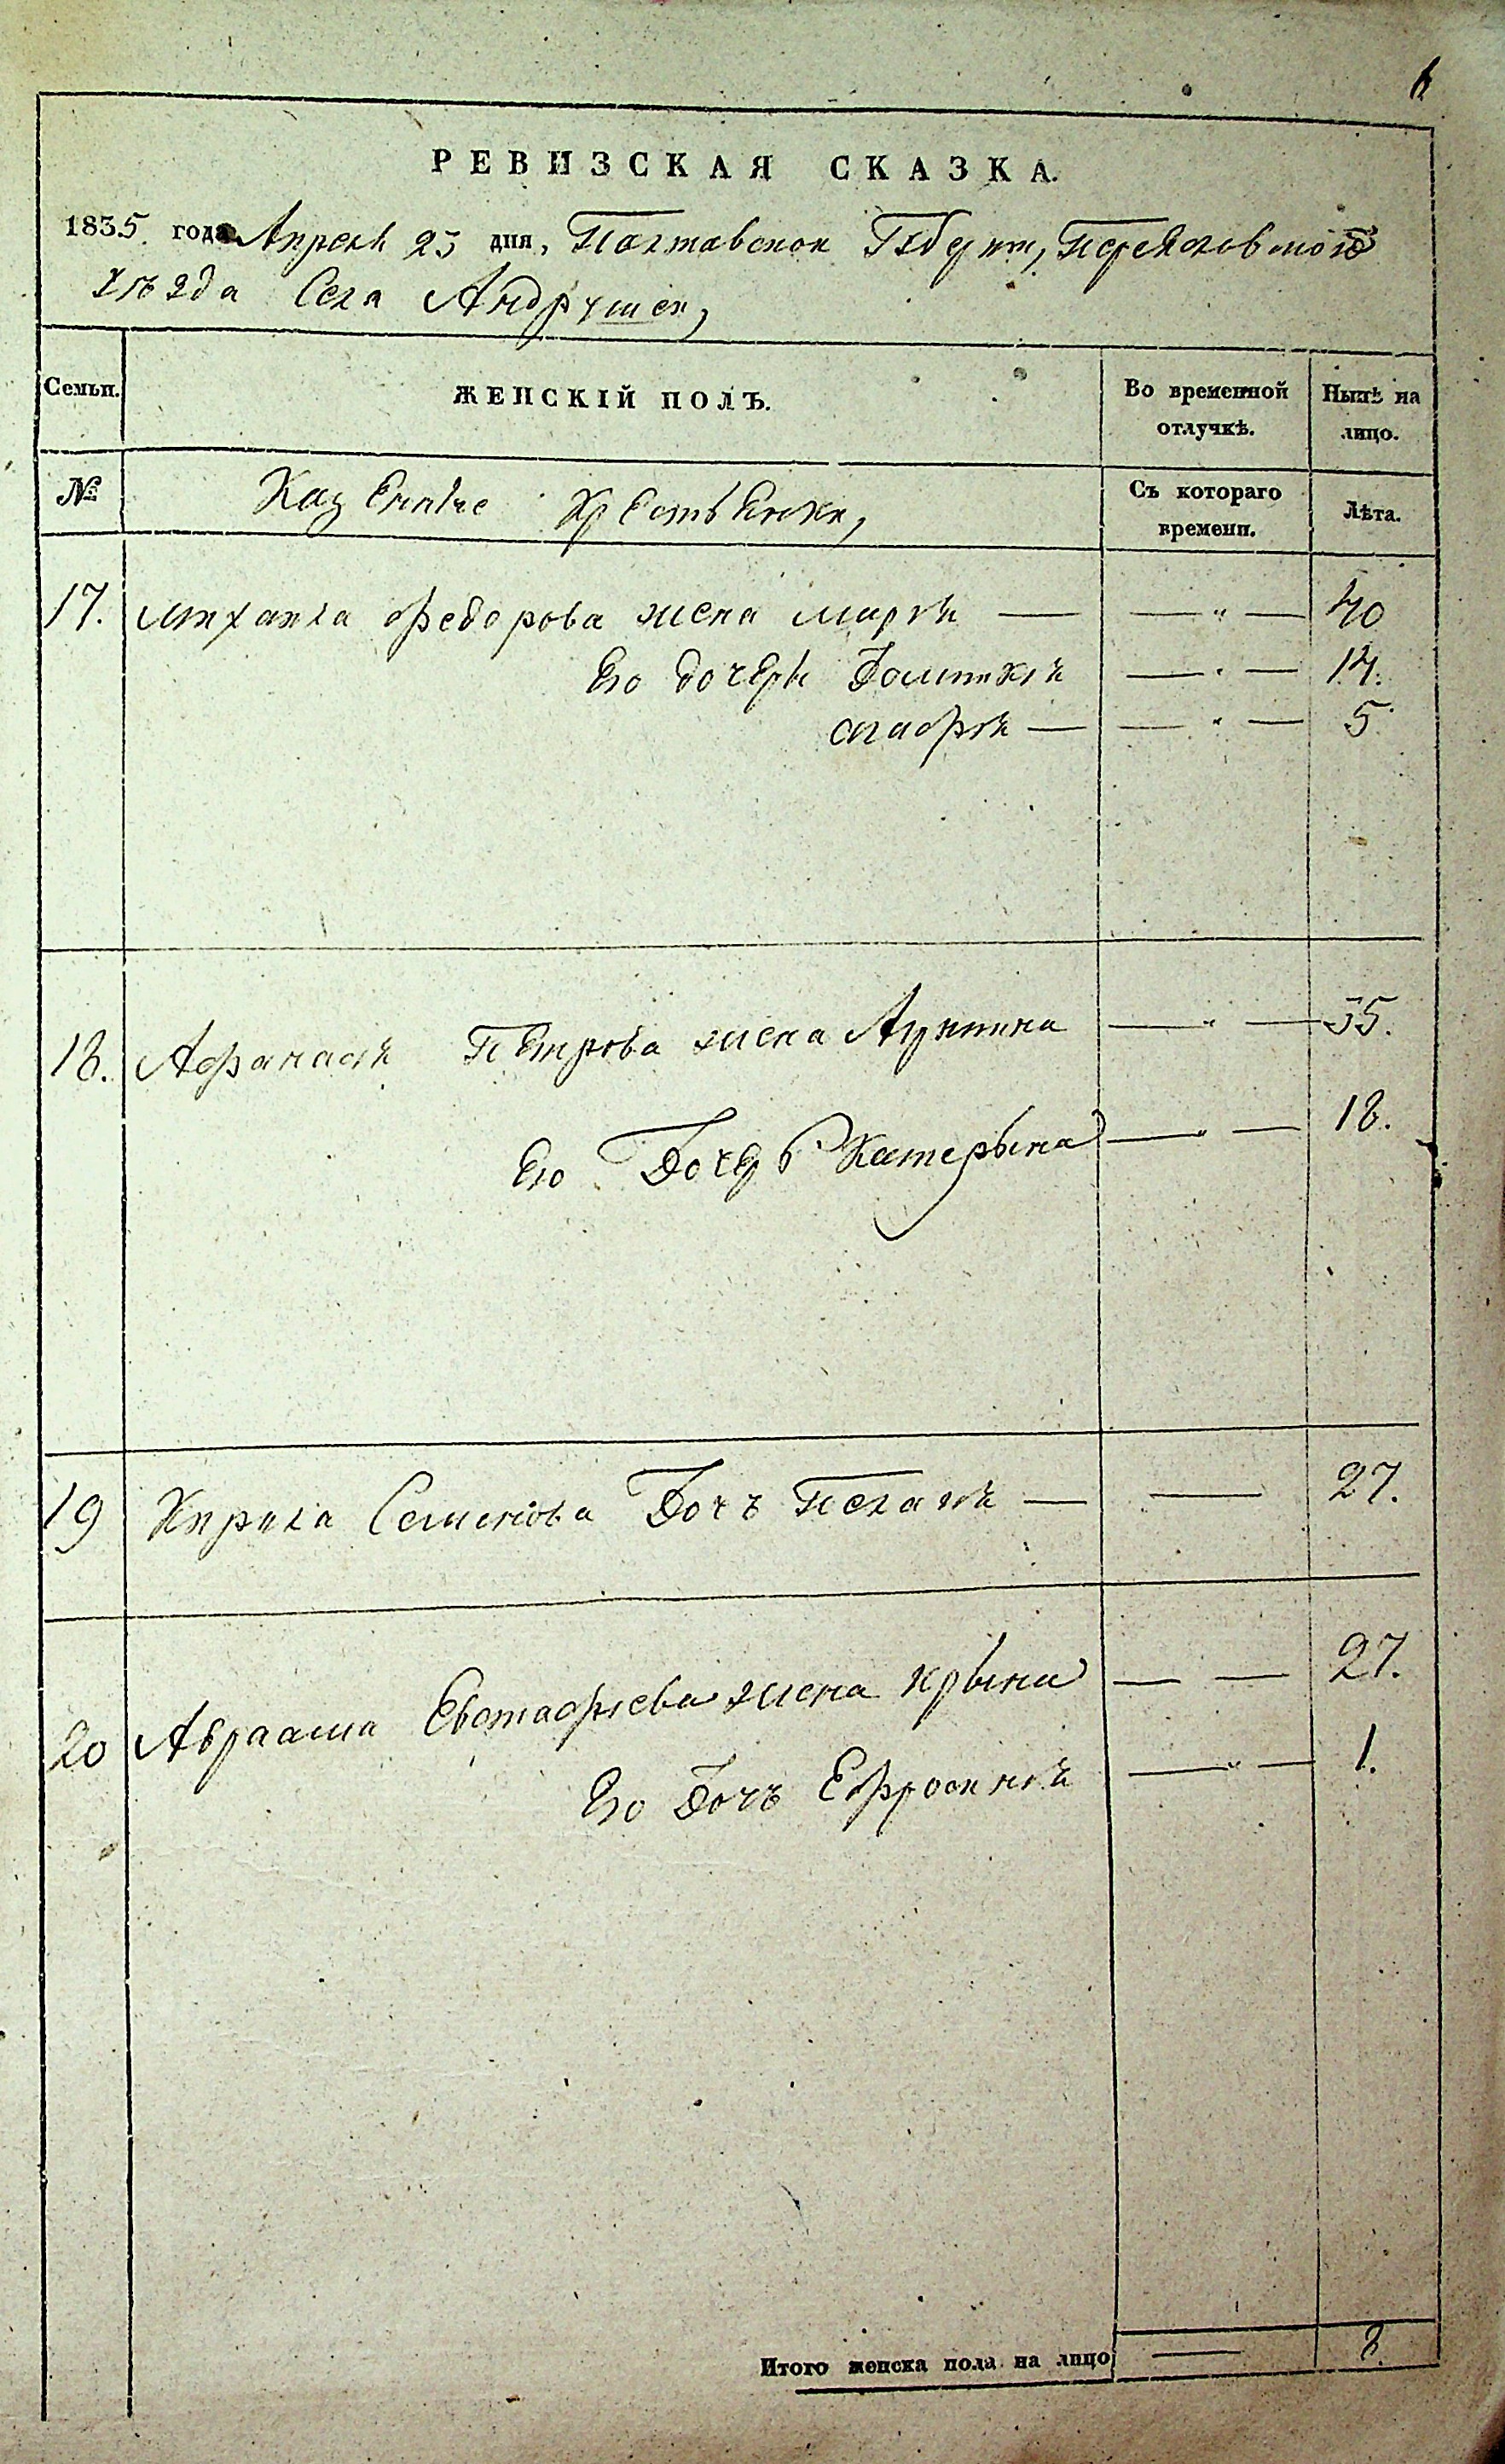 6
РЕВИЗСКАЯ СКАЗКА.
1835. года Апреля 25 дня, Полтавской Губерни, Переяславского
Уѣзда Села Андрушек,
Семьи. ЖЕНСКІЙ ПОЛЪ. Во временной отлучкѣ. Нынѣ на лицо.
№ Казенные Крестьянки, Съ котораго времени. Лѣта.
17. Михаила Федорова жена Марія — — „ — 40
Его дочери Домникія — „ — 14.
Агафія — — „ — 5.
18. Афанасія Петрова жена — „ — 55.
Его Дочерь Катерына — „ — 18.
19 Кирила Семенова Дочъ Пелагія — — 27.
20 Авраама Евстафиева жена Ирына — — 27.
Его Дочъ Ефросинія — „ — 1.
Итого женска пола на лицо — 8.